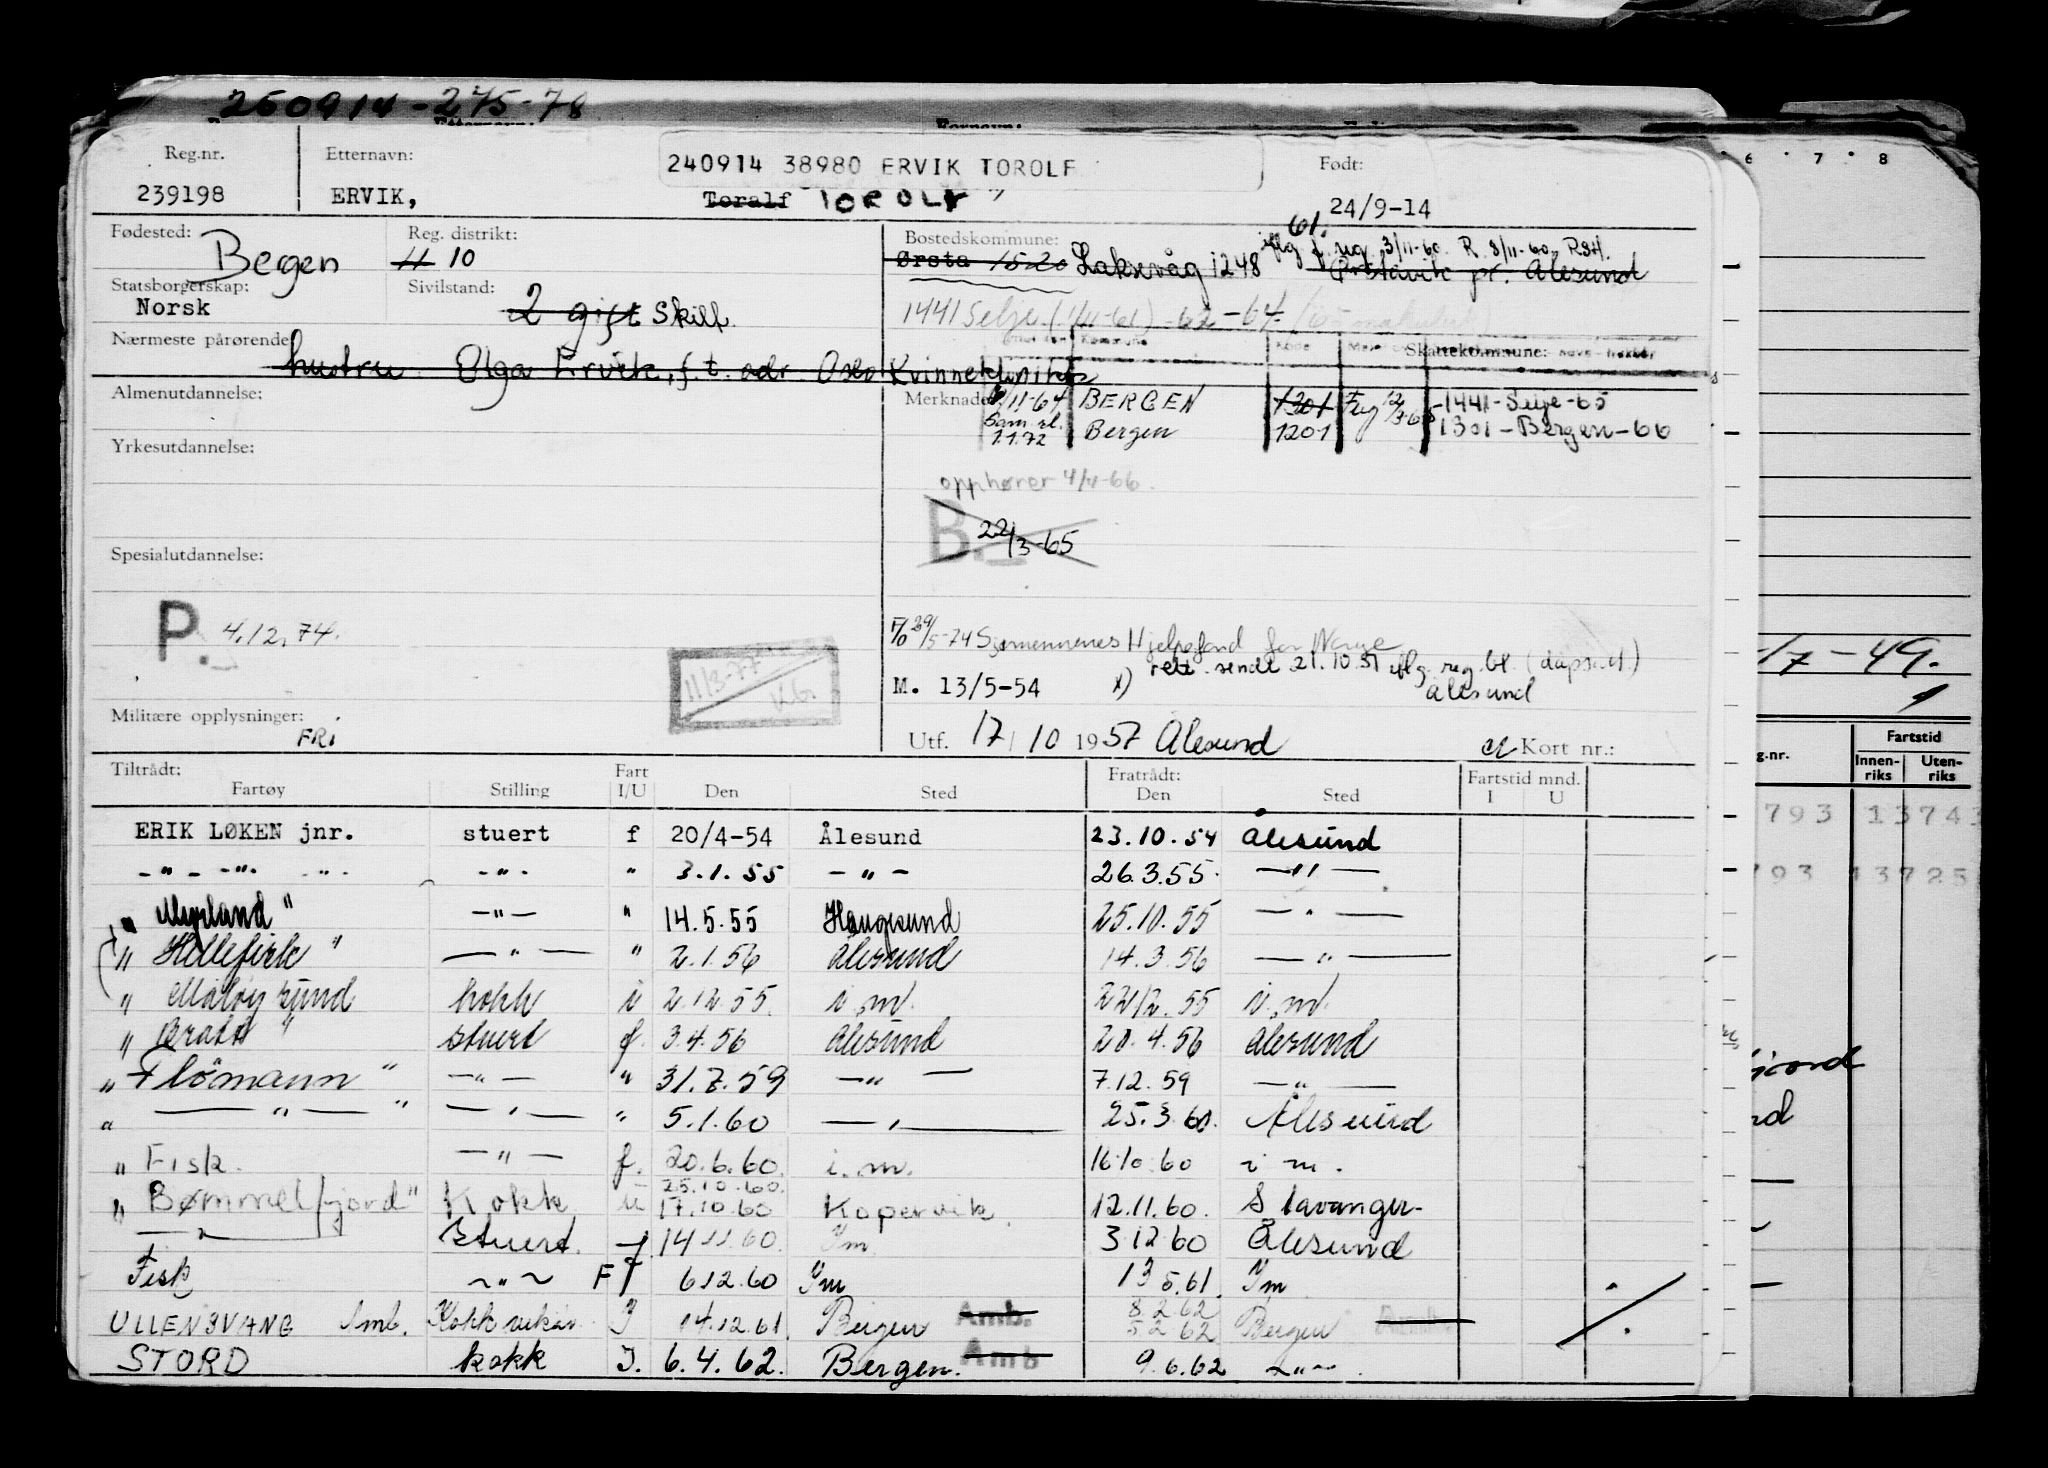 250914-275-78
Reg.nr. Etternavn: 240914 38980 ERVIK TOROLF Født:
239198 ERVIK, Toralf TOROLF 24/9-14
Fødested: Bergen Reg. distrikt: 11 10 Bostedskommune: Ørsta 1520 Laksevåg 1248
61. 3/11-60. R. 8/11-60.
pr. Ålesund
Statsborgerskap: Norsk Sivilstand: 2 gift Skilt.
1441 Selje (1/11-61) -62-64
Nærmeste pårørende hustru Olga Ervik, f.t. adr. Oslo Kvinneklinikk
Skattekommune:
Almenutdannelse: Merknader: 11-64 BERGEN 1301 -1441-Selje-65
Sam.nl. 1.1.72 Bergen 1201 1301-Bergen-66
Yrkesutdannelse:
opphører 4/4-66.
B. 22/3-65
Spesialutdannelse:
P. 4.12.74.
29/5-74 Sjømennenes Hjelpefond for Norge
rett. sendt 21.10.57 iflg. reg. bl.
11/3-77 M. 13/5-54 x) Ålesund
Militære opplysninger: FRI
Utf. 17/10 1957 Ålesund Kort nr.:
-17-49.
6 7 8
Tiltrådt: Fratrådt: Fartstid mnd.
Fartøy Stilling Fart I/U Den Sted Den Sted I U
g.nr. Fartstid Innen-riks Uten-riks
793 13743
793 13725
ERIK LØKEN jnr. stuert f 20/4-54 Ålesund 23.10.54 Ålesund
-"- -"- -"- -"- " 3.1.55 -"- 26.3.55. -"-
" Myrland" -"- " 14.5.55 Haugesund 25.10.55 -"-
" Hillefisk " -"- " 2.1.56 Ålesund 14.3.56 -"-
" Måløysund kokk i 2.12.55. i.m. 22/12.55 i.m.
" Bratt " stuert f. 3.4.56 Ålesund 20.4.56 Ålesund
" Flömann " -"- " 31.7.59 -"- 7.12.59 -"-
" -"- " -"- " 5.1.60 -"- 25.3.60. Ålesund
" Fisk. -"- f. 20.6.60. i.m. 16.10.60 i m.
" Bømmelfjord" Kokk 25.10.60. 17.10.60 Kopervik. 12.11.60. Stavanger
-"- Stuert. f 14.11.60. Im. 3.12.60 Ålesund
Fisk -"- F 6.12.60 Im 13.5.61. Im
ULLENSVANG Amb. Kokk vikar I 14.12.61. Bergen Amb. 8.2.62 5.2.62 Bergen Amb.
STORD kokk I. 6.4.62. Bergen. Amb 9.6.62 -"-